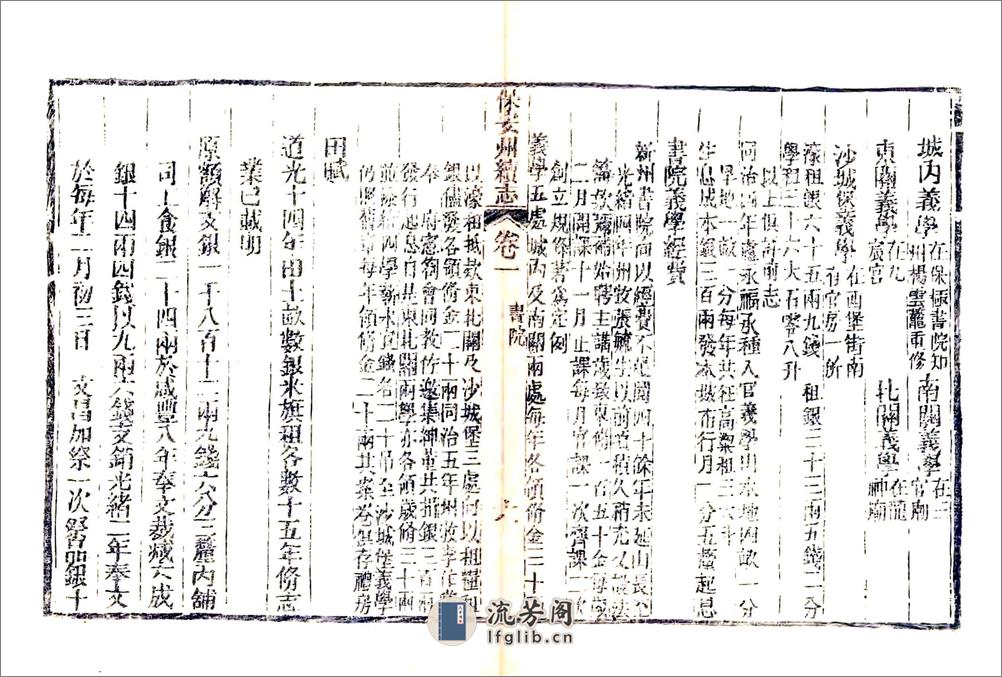 城內義學在保極書院知州楊雲龍重修 南關義學在三官廟
東關義學在九廣宮 北關義學在龍神廟
沙城保義學在西堡街南有官房一所
濠租銀六十五兩九錢 租銀三十三兩五錢二分
學租三十六大石零八升
以上俱前志
同治四年盧永福承種入官義學山水地四畝一分
旱地一畝一分每年共征高粱租三大斗
生息成本銀三百兩發本城布行月一分五釐起息
書院義學經費
新州書院向以經費不足閱四十餘年未延山長至
光緒四年州牧張毓生以前存積久稍尤又設法
籌欵彌補始聘主講歲致束脩一百五十金每歲
二月開課十一月止課每月官課一次齋課二次
創立規條著為定例
義學五處城內及南關兩處每年各領脩金二十
以濠租城款東北關及沙城堡三處向以租糧
銀儘發各領脩金二十兩同治五年州牧李
奉 府憲劄會同教佐邀集紳董共捐銀三百兩
發行起息由是東北關兩學亦各領歲脩三十兩
仍照舊章每年領脩金二十兩其案卷俱存禮房
田賦
道光十四年田土畝數銀米旗租各數十五年修志
業已載明
原額解支銀一千八百十二兩九錢六分三釐內舖
司工食銀二十四兩於咸豐八年奉文裁減六成
銀十四兩四錢以九兩六錢支銷光緒二年奉文
於每年二月初三日 文昌加祭一次祭品銀十
保安州續志 卷一 書院 六
流芳阁
lfglib.cn